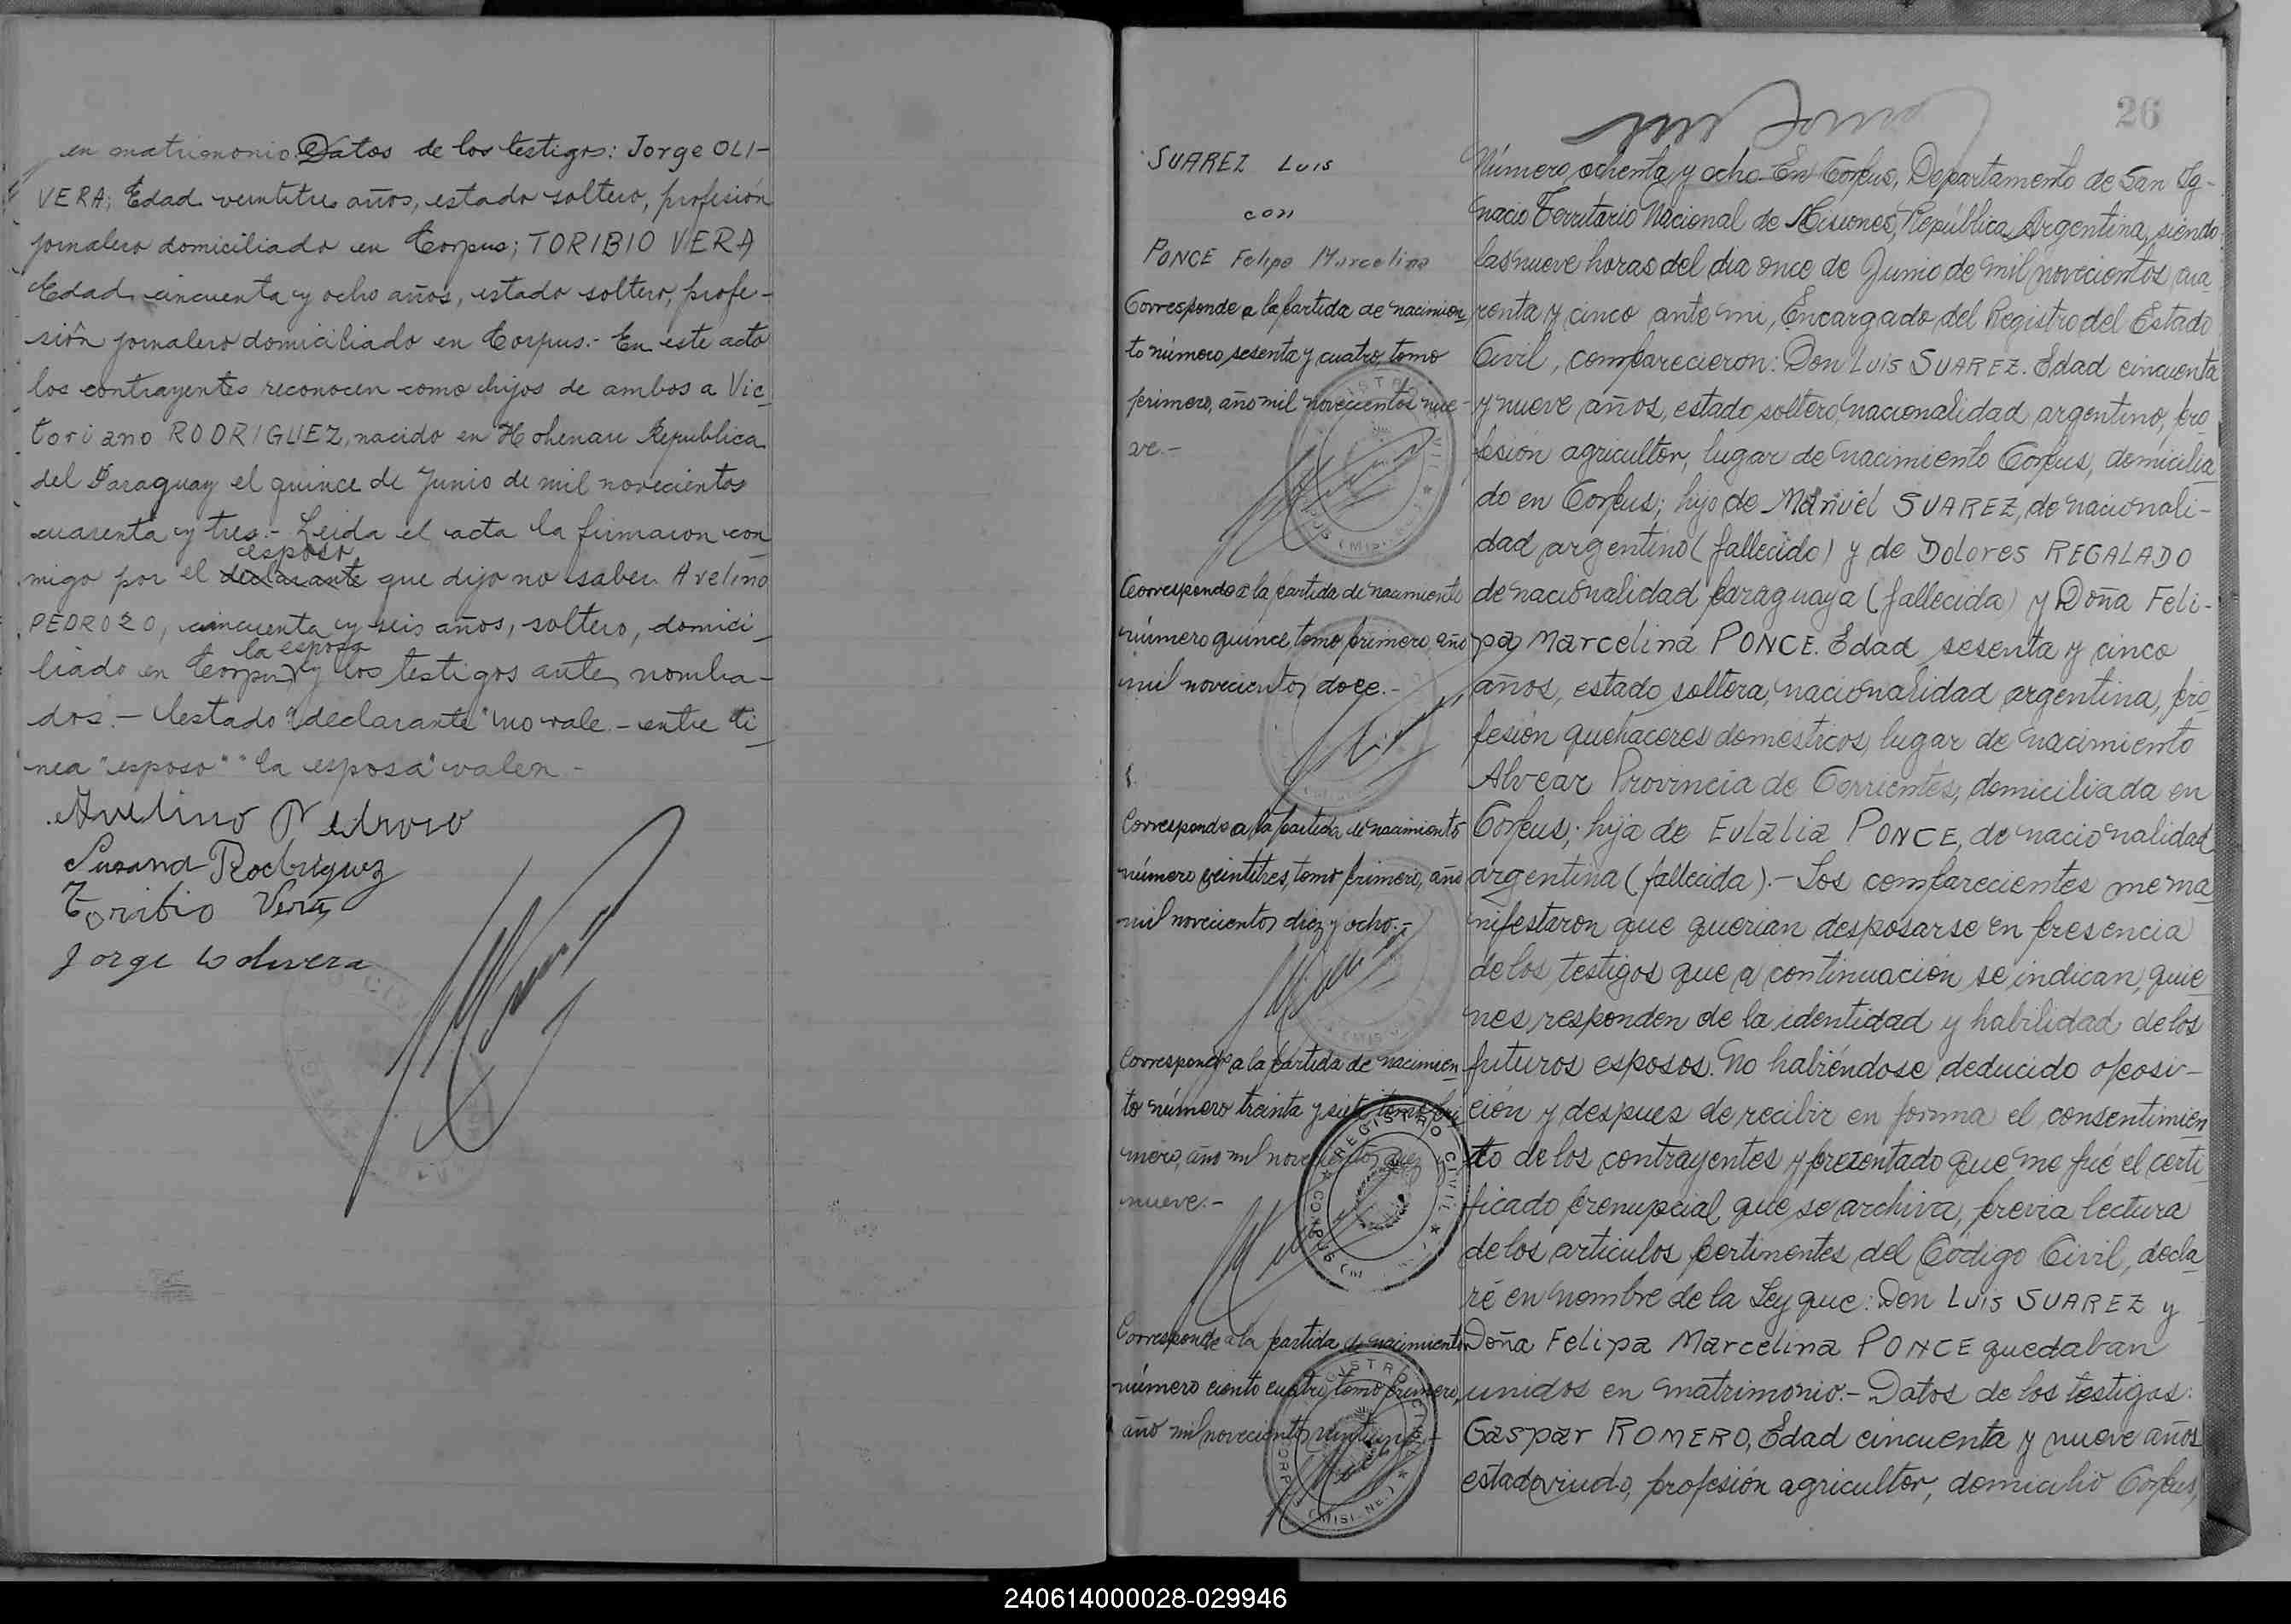 en matrimonio. Datos de los testigos: Jorge OLI-
VERA; Edad veintitres años, estado soltero, profesión
jornalero domiciliado en Corpus; TORIBIO VERA
Edad cincuenta y ocho años, estado soltero, profe-
sión jornalero domiciliado en Corpus.- En este acto
los contrayentes reconocen como hijos de ambos a Vic_
toriano RODRIGUEZ, nacido en Hohenau Republica
del Paraguay el quince de Junio de mil novecientos
cuarenta y tres.- Leida el acta la firmaron con_
esposo
migo por el declarante que dijo no saber Avelino
PEDROZO, cincuenta y seis años, soltero, domici_
la esposa
liado en Corpus y los testigos antes nombra-
dos.- testado "declarante" no vale.- entre li_
nea "esposo" "la esposa" valen-
Avelino Pedrozo
Susana Rodriguez
Toribio Vera
Jorge Wolivera
26
SUAREZ LUIS
con
PONCE Felipa Marcelina
Corresponde a la partida de nacimien_
to número sesenta y cuatro, tomo
primero, año mil novecientos nue-
ve.-
Corresponde a la partida de nacimiento
número quince, tomo primero, año
mil novecientos doce.-
Corresponde a la partida de nacimiento
número veintitres, tomo primero, año
mil novecientos diez y ocho.-
Corresponde a la partida de nacimien_
to número treinta y siete, tomo pri_
mero, año mil novecientos diez
nueve.-
Corresponde a la partida de nacimiento
número ciento cuatro, tomo primero,
año mil novecientos veintiuno.-
REGISTRO CIVIL
CORPUS
Número ochenta y ocho. En Corpus, Departamento de San Ig-
nacio Territorio Nacional de Misiones, República Argentina, siendo
las nueve horas del dia once de Junio de mil novecientos cua_
renta y cinco ante mi, Encargado del Registro del Estado
Civil, comparecieron: Don LUIS SUAREZ. Edad cincuenta
y nueve años, estado soltero, nacionalidad argentino, pro_
fesión agricultor, lugar de nacimiento Corpus, domicilia_
do en Corpus; hijo de Manuel SUAREZ, de nacionali-
dad argentino (fallecido) y de Dolores REGALADO
de nacionalidad paraguaya (fallecida) y Doña Feli-
pa Marcelina PONCE. Edad sesenta y cinco
años, estado soltera, nacionalidad argentina, pro_
fesión quehaceres domésticos, lugar de nacimiento
Alvear Provincia de Corrientes, domiciliada en
Corpus; hija de Eulalia PONCE, de nacionalidad
argentina (fallecida).- Los comparecientes me ma_
nifestaron que querian desposarse en presencia
de los testigos que a continuación se indican, quie_
nes responden de la identidad y habilidad de los
futuros esposos. No habiéndose deducido oposi-
ción y despues de recibir en forma el consentimien_
to de los contrayentes y presentado que me fué el certi_
ficado prenupcial, que se archiva, previa lectura
de los articulos pertinentes del Código Civil, decla_
ré en nombre de la Ley que: Don LUIS SUAREZ y
Doña Felipa Marcelina PONCE quedaban
unidos en matrimonio.- Datos de los testigos:
Gaspar ROMERO, Edad cincuenta y nueve años
estado viudo, profesión agricultor, domicilio Corpus,
240614000028-029946